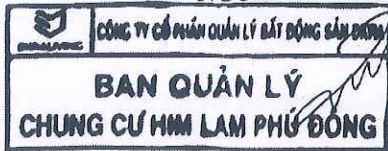 CÔNG TY CỔ PHẦN QUẢN LÝ BẤT ĐỘNG SẢN
BAN QUẢN LÝ
CHUNG CƯ HIM LAM PHÚ ĐÔNG